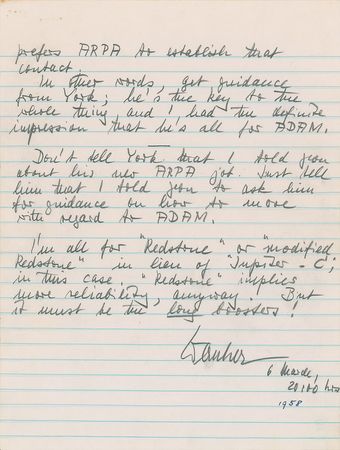 prefers ARPA to establish that
contact.
In other words, get guidance
from York; he's the key to the
whole thing and I had the definite
impression that he's all for ADAM.
Don't tell York that I told you
about his new ARPA job. Just tell
him that I told you to ask him
for guidance on how to move
with regard to ADAM.
I'm all for "Redstone" or "modified
Redstone" in lieu of "Jupiter-C";
in this case, "Redstone" implies
more reliability, anyway. But
it must be the long boosters!
Wernher
6 March,
hrs
1958